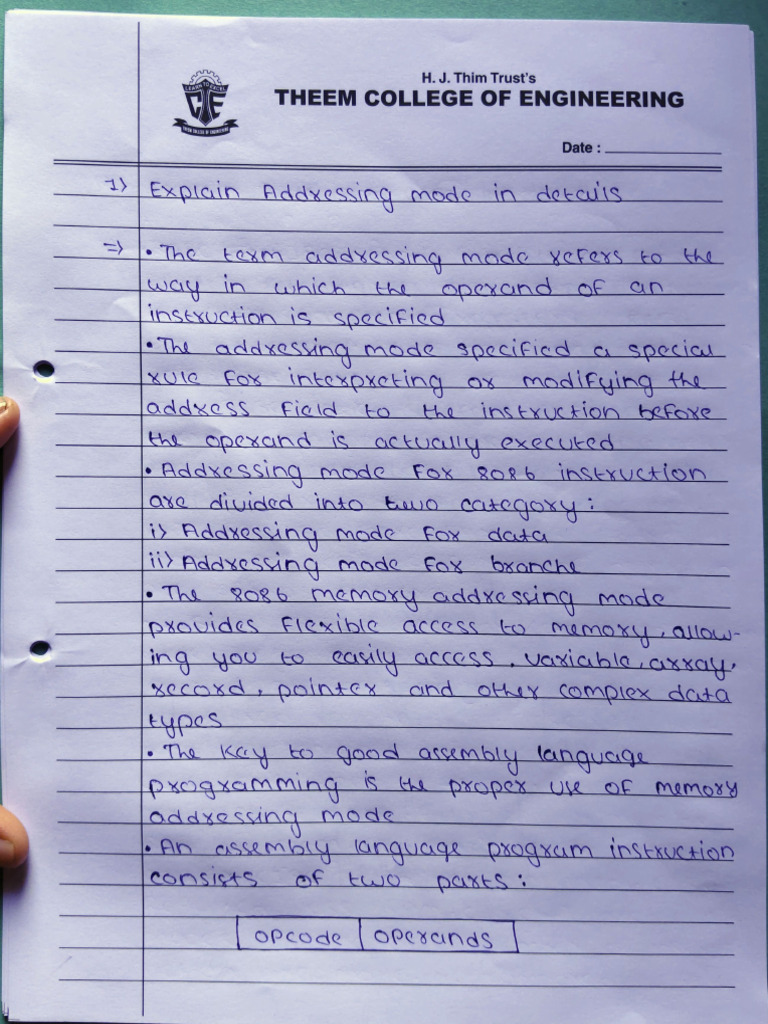 H. J. Thim Trust's
THEEM COLLEGE OF ENGINEERING
LEARN TO EXCEL
THEEM COLLEGE OF ENGINEERING
Date :
1) Explain Addressing mode in details
=> • The term addressing mode refers to the
way in which the operand of an
instruction is specified
• The addressing mode specified a special
rule for interpreting or modifying the
address field to the instruction before
the operand is actually executed
• Addressing mode for 8086 instruction
are divided into two category :
i) Addressing mode for data
ii) Addressing mode for branche
• The 8086 memory addressing mode
provides flexible access to memory, allow-
ing you to easily access, variable, array,
record, pointer and other complex data
types
• The key to good assembly language
programming is the proper use of memory
addressing mode
• An assembly language program instruction
consists of two parts :
opcode operands